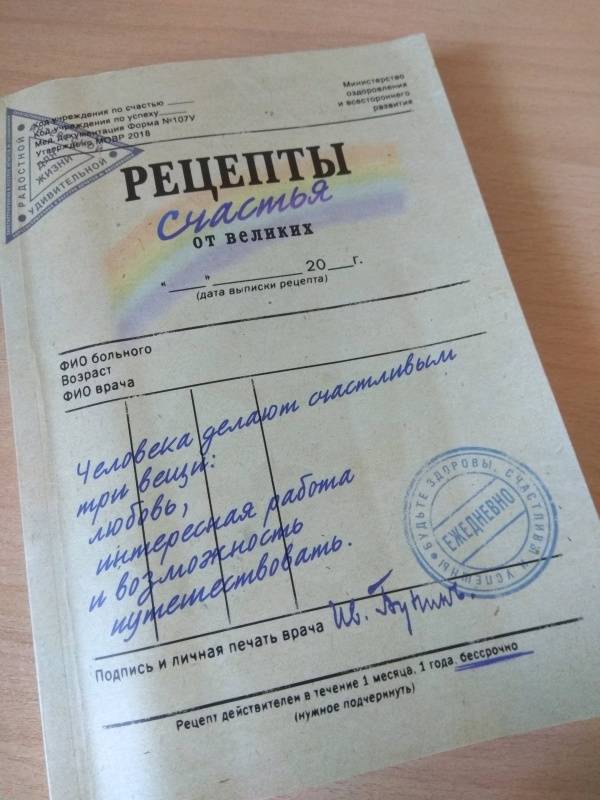 Код учреждения по счастью ____
Код учреждения по успеху____
Мед. документация Форма №107У
Утверждено МОВР 2018
Министерство
оздоровления
и всестороннего
развития
РАДОСТНОЙ
ЖИЗНИ
УДИВИТЕЛЬНОЙ
РЕЦЕПТЫ
счастья
от великих
"____"__________ 20___г.
(дата выписки рецепта)
ФИО больного
Возраст
ФИО врача
Человека делают счастливым
три вещи:
любовь,
интересная работа
и возможность
путешествовать.
БУДЬТЕ ЗДОРОВЫ, СЧАСТЛИВЫ И УСПЕШНЫ
ЕЖЕДНЕВНО
Подпись и личная печать врача Ив. Бунинъ.
Рецепт действителен в течение 1 месяца, 1 года, бессрочно
(нужное подчеркнуть)